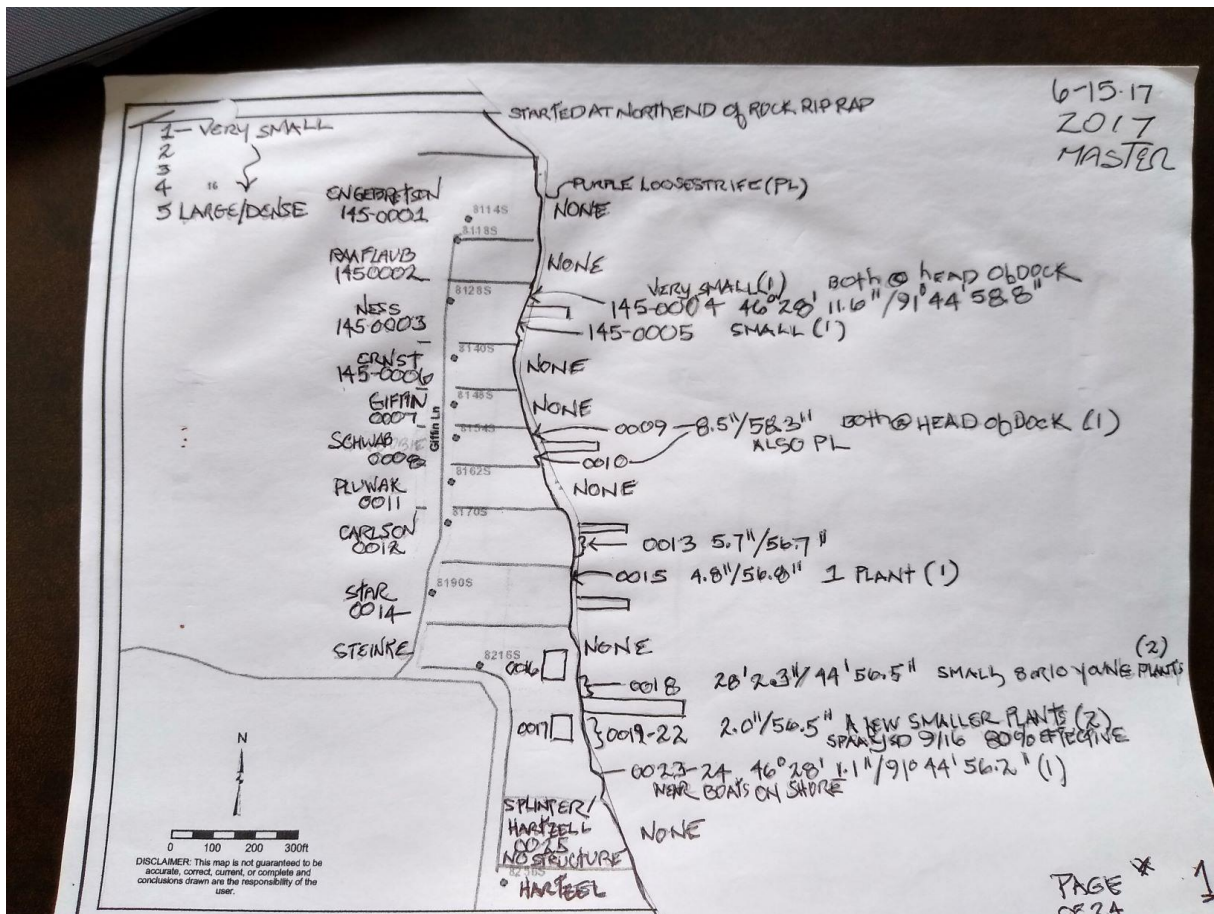 STARTED AT NORTH END of ROCK RIP RAP
6-15-17
2017
MASTER
1 - VERY SMALL
2
3
4
5 LARGE/DENSE
16
ENGEBRETSON
145-0001
8114S
PURPLE LOOSESTRIFE (PL)
NONE
8118S
RAAFLAUB
1450002
NONE
NESS
145-0003
8128S
VERY SMALL (1) BOTH @ head Ob DOCK
145-0004 46°28' 11.6"/91°44'58.8"
145-0005 SMALL (1)
ERNST
145-0006
8140S
NONE
GIFFIN
0007
8148S
NONE
Giffin Ln
SCHWAB
0008
8154S
0009 - 8.5"/58.3" Both @ HEAD Ob DOCK (1)
ALSO PL
0010
PLUWAK
0011
8162S
NONE
CARLSON
0012
8170S
0013 5.7"/56.7"
0015 4.8"/56.8" 1 PLANT (1)
STAR
0014
8190S
STEINKE
8216S
NONE
0016
(2)
0018 28'2.3"/44'56.5" SMALL 8 OR 10 YOUNG PLANTS
0017
0019-22 2.0"/56.5" A NEW SMALLER PLANTS (2)
9/16 80% EFFECTIVE
0023-24 46°28' 1.1"/91°44'56.2" (1)
NEAR BOATS ON SHORE
N
SPLINTER/
HARTZELL
0025
NO STRUCTURE
NONE
HARTZEL
0 100 200 300ft
DISCLAIMER: This map is not guaranteed to be
accurate, correct, current, or complete and
conclusions drawn are the responsibility of the
user.
PAGE * 1
OF 24